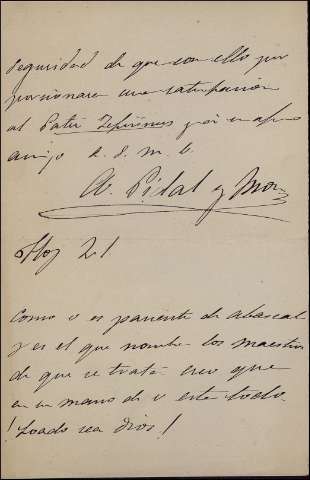 seguridad de que con ello pro
porcionara una satisfacción
al Pater Zeferinus y á su afmo
amigo q. s. m. b.
A. Pidal y Mon
Hoy 21
Como v es pariente de Abascal
y es el que nombra los maestros
de que se trata creo que
en su mano de v está todo.
¡Loado sea Dios!